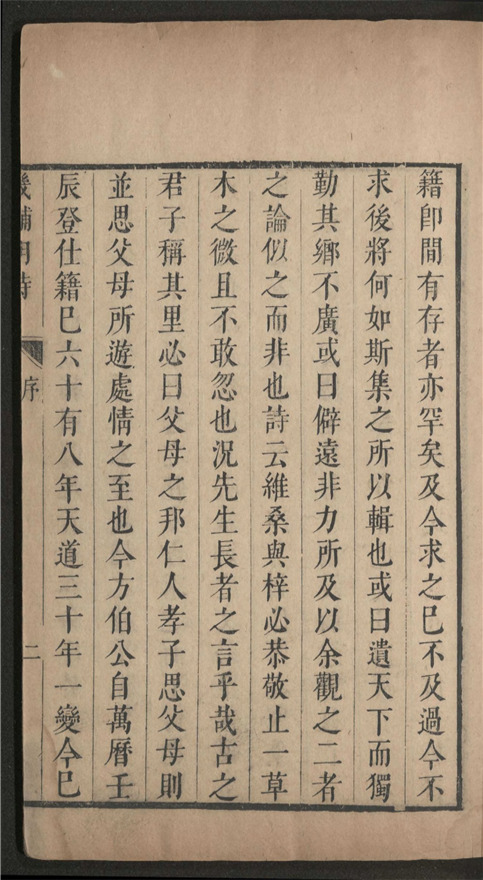 籍卽間有存者亦罕矣及今求之巳不及過今不
求後將何如斯集之所以輯也或曰遺天下而獨
勤其鄉不廣或曰僻遠非力所及以余觀之二者
之論似之而非也詩云維桑與梓必恭敬止一草
木之微且不敢忽也況先生長者之言乎哉古之
君子稱其里必曰父母之邦仁人孝子思父母則
並思父母所遊處情之至也今方伯公自萬曆壬
辰登仕籍巳六十有八年天道三十年一變今巳
畿輔明詩 序 二